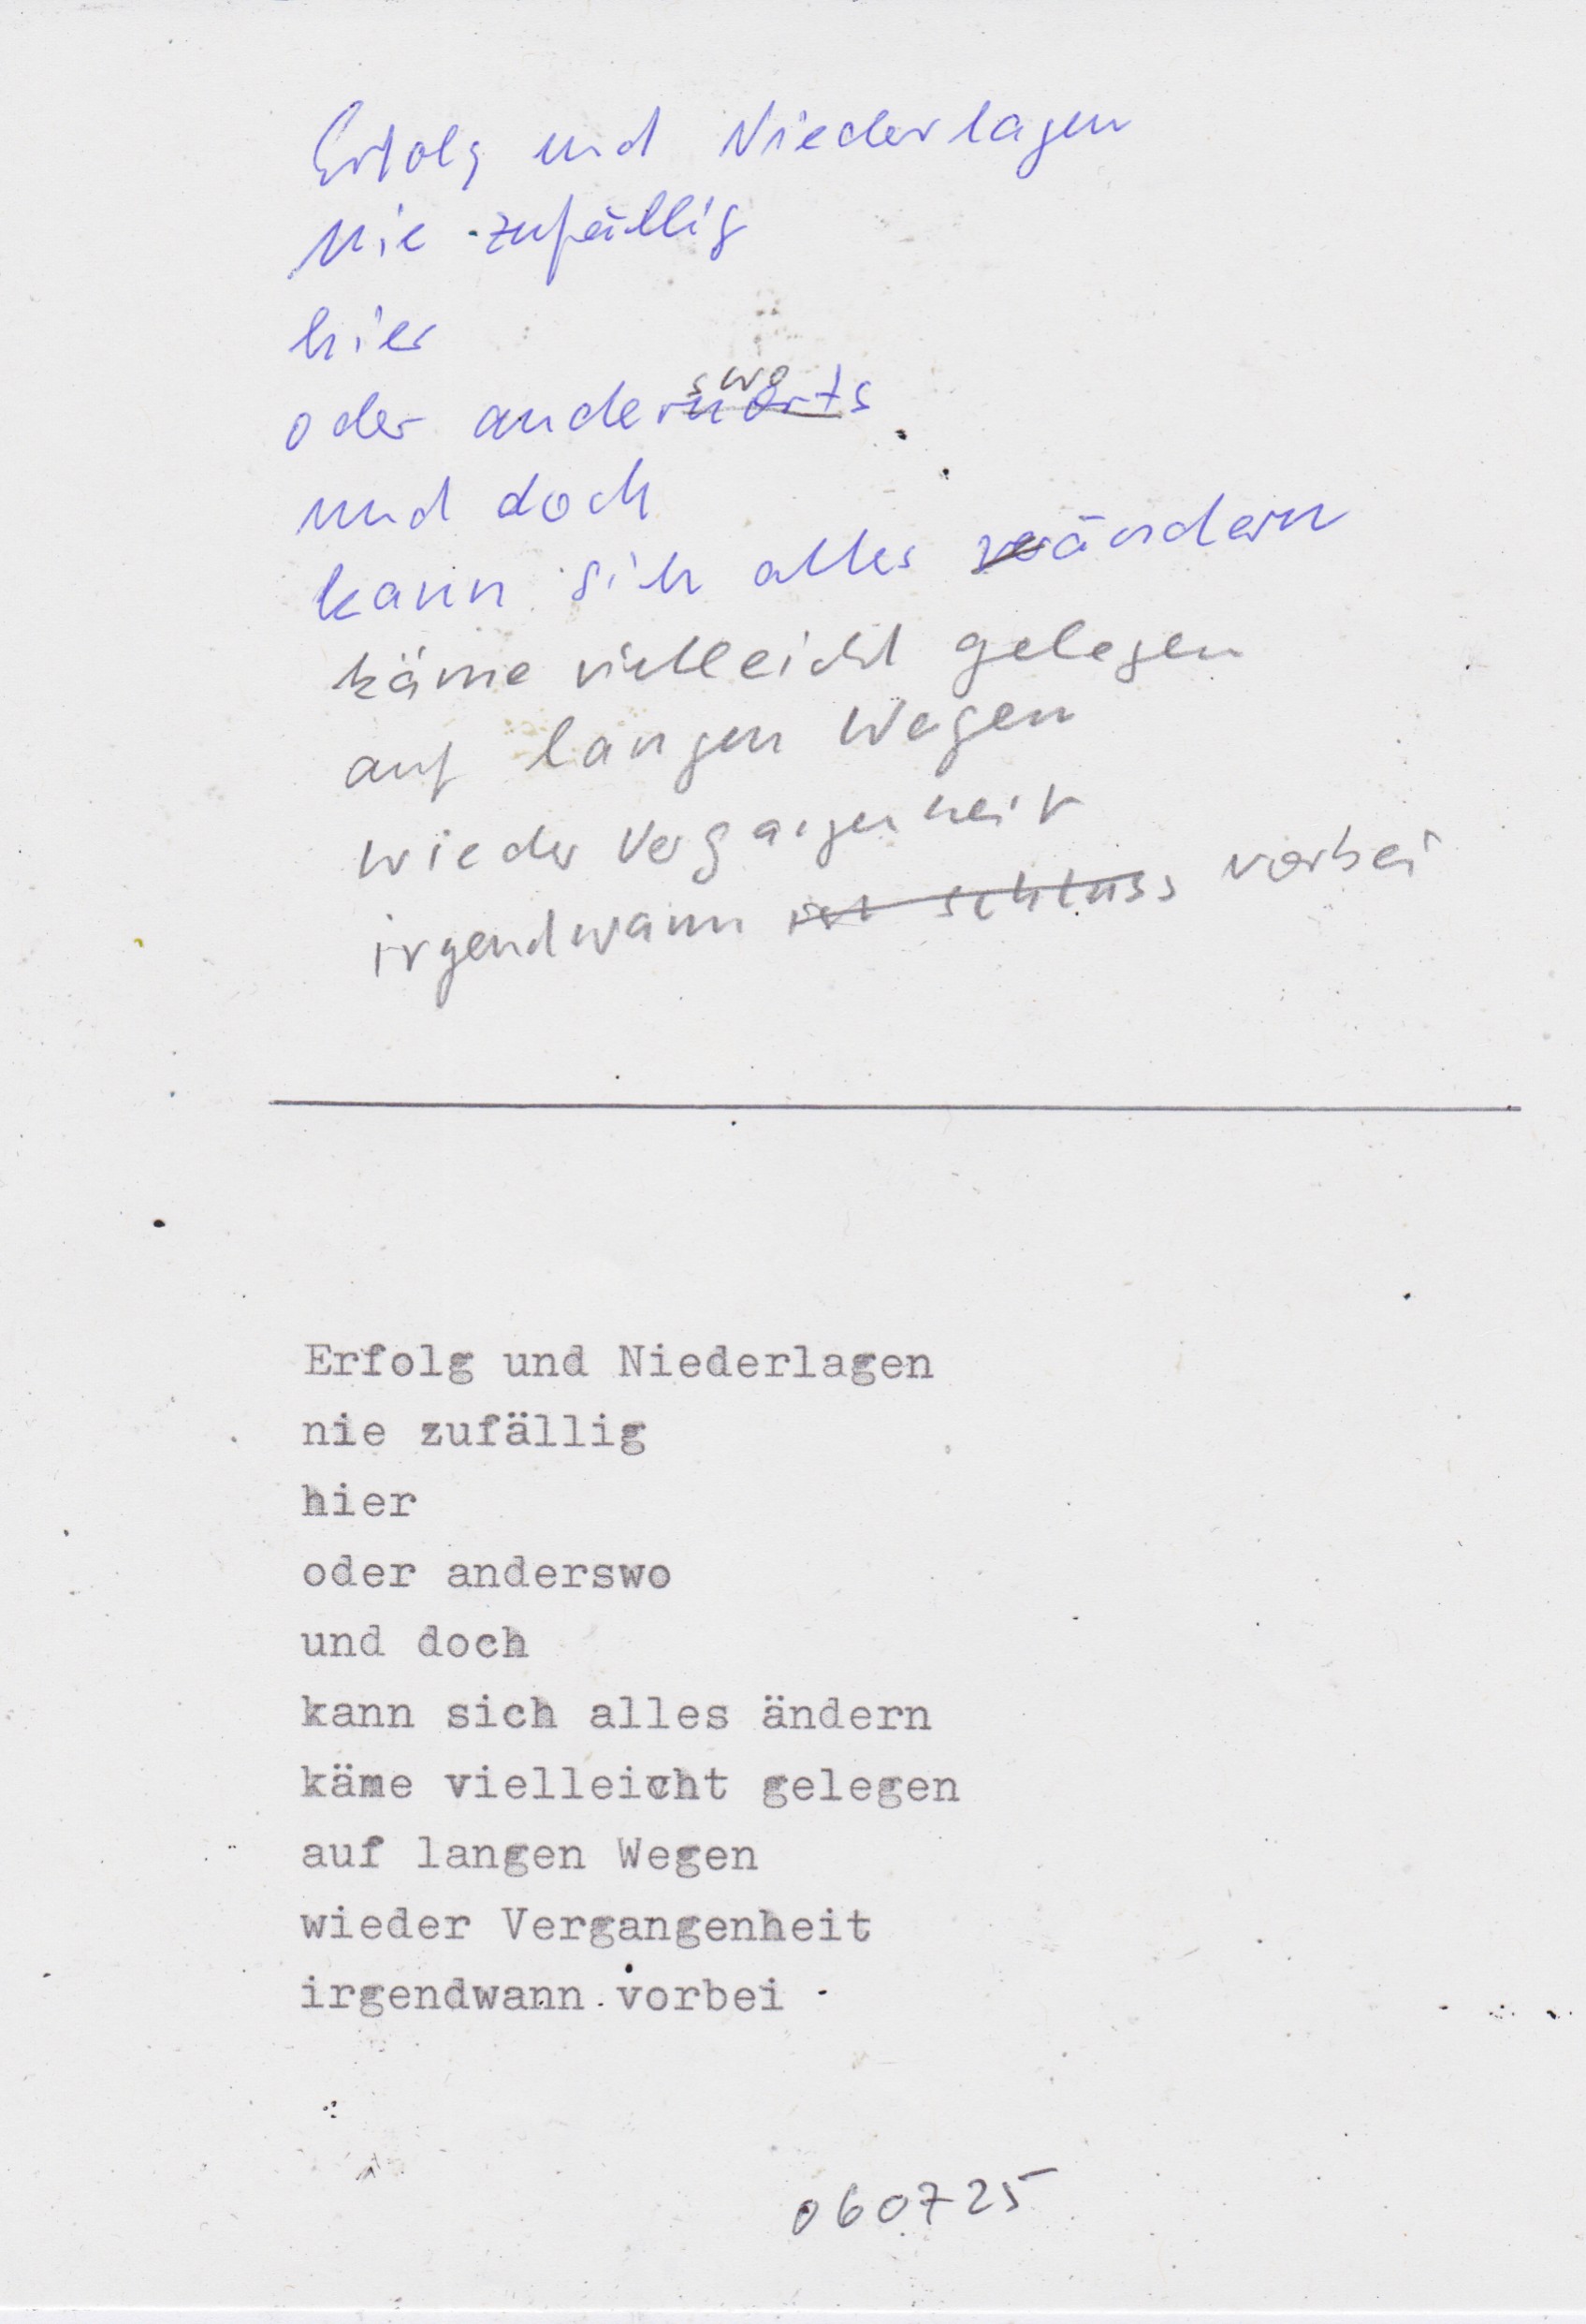 Erfolg und Niederlagen
nie zufällig
hier
swo
oder andernorts
und doch
kann sich alles verändern
käme vielleicht gelegen
auf langen Wegen
wieder Vergangenheit
irgendwann ist schluss vorbei
Erfolg und Niederlagen
nie zufällig
hier
oder anderswo
und doch
kann sich alles ändern
käme vielleicht gelegen
auf langen Wegen
wieder Vergangenheit
irgendwann vorbei
060725